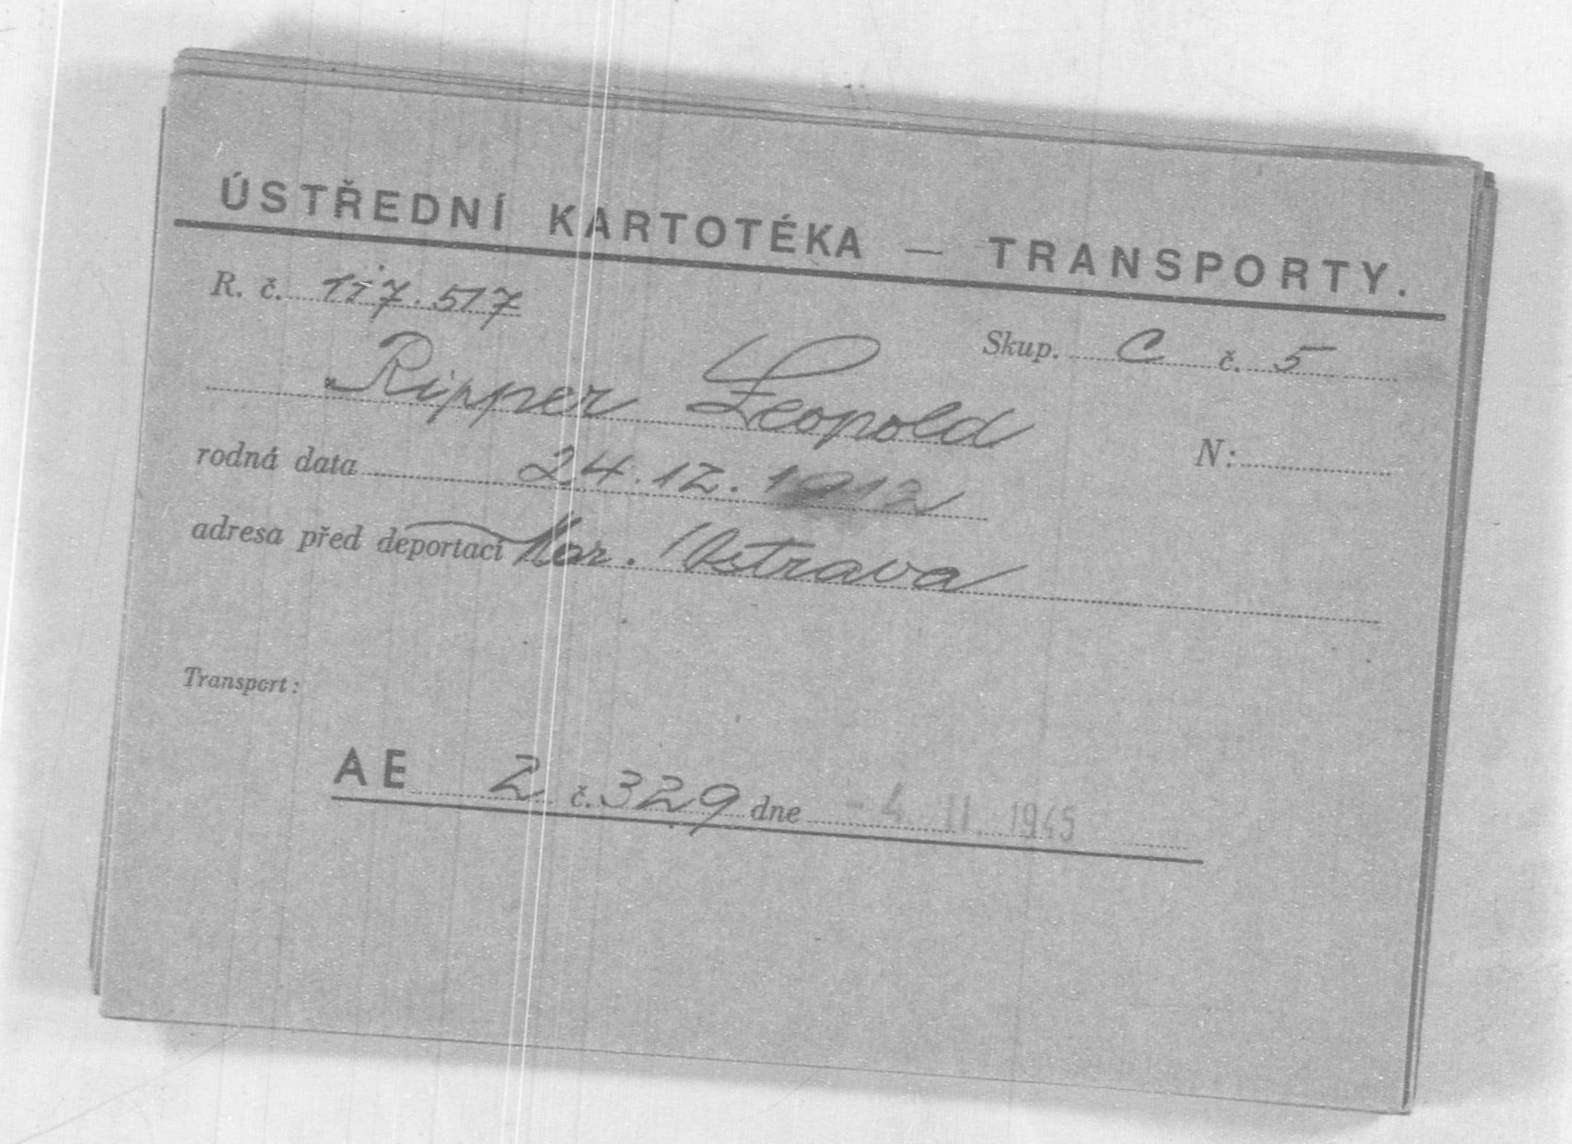 ÚSTŘEDNÍ KARTOTÉKA — TRANSPORTY.
R. č. 117.517
Skup. C č. 5
Ripper Leopold
N:
rodná data 24.12.1912
adresa před deportací Mor. Ostrava
Transport:
AE 2 č. 329 dne -4. II. 1945